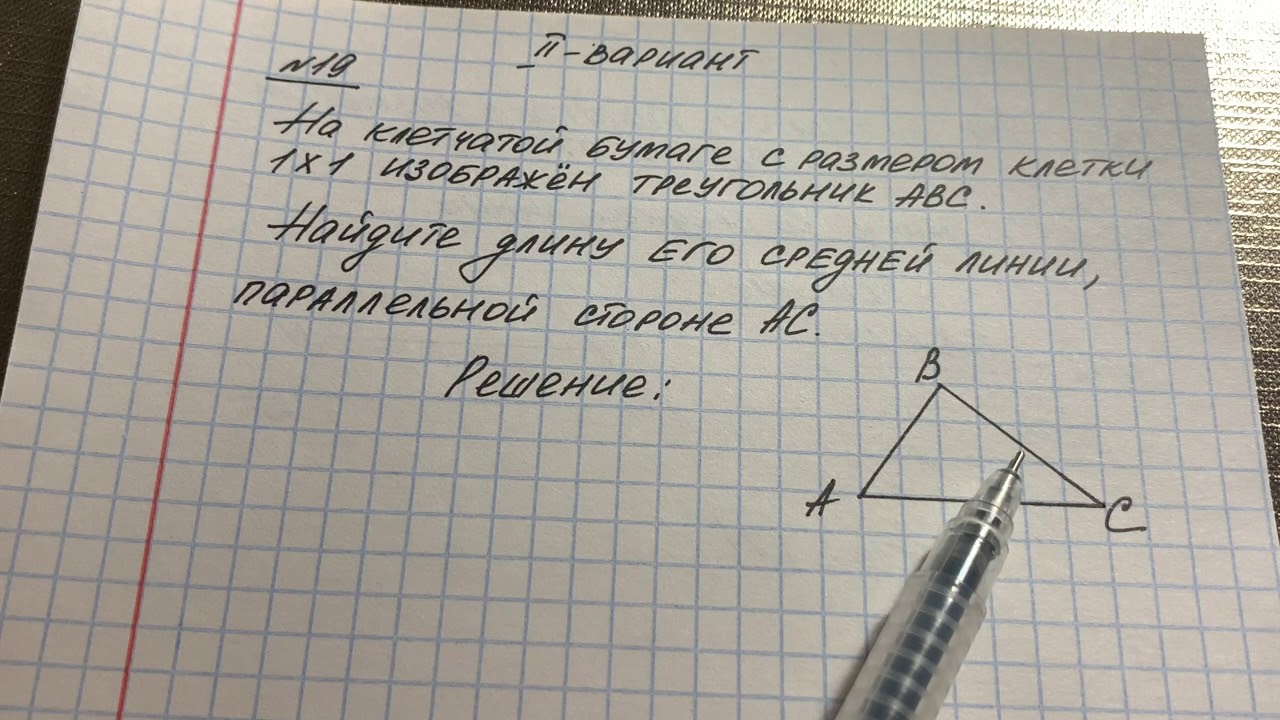 II-вариант
№19
На клетчатой бумаге с размером клетки
1х1 изображён треугольник АВС.
Найдите длину его средней линии,
параллельной стороне АС.
Решение:
В
А
С